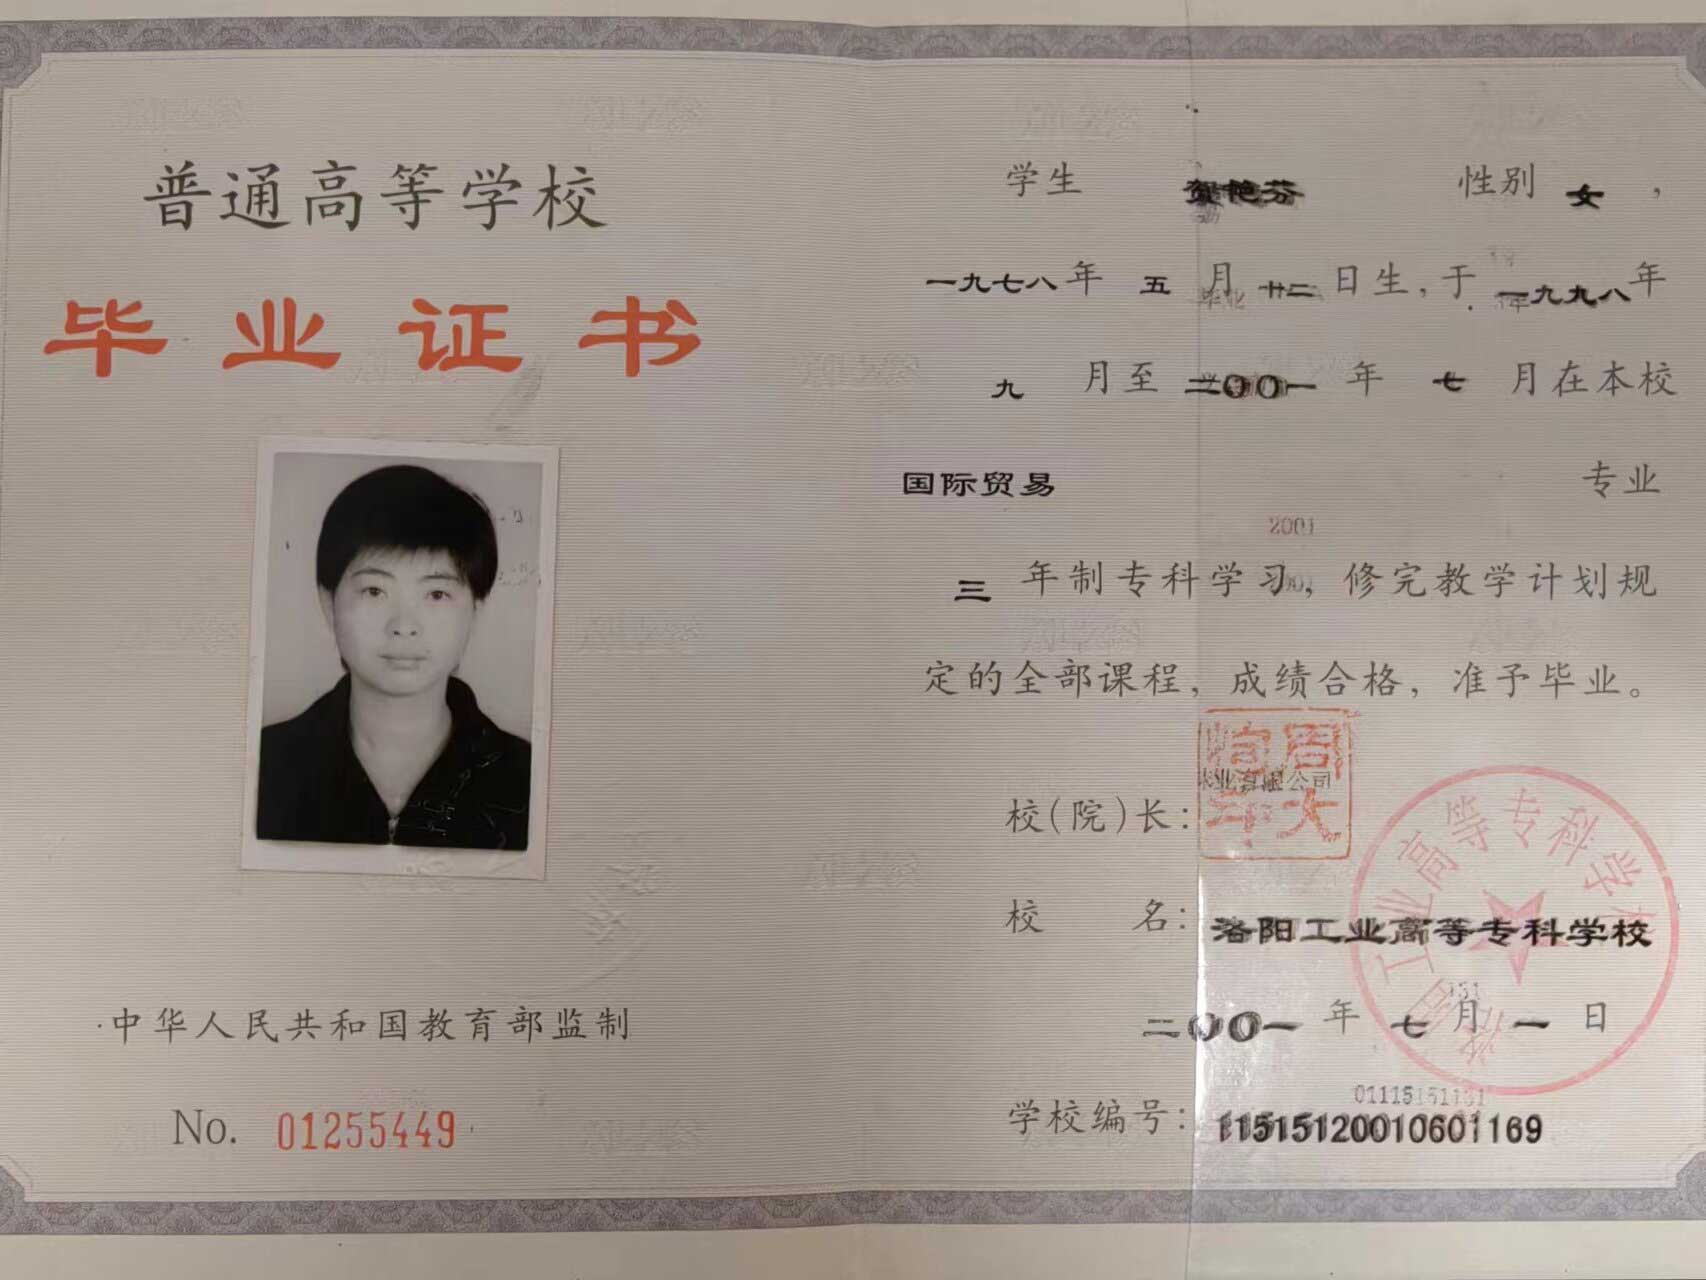 普通高等学校
毕业证书
中华人民共和国教育部监制
No. 01255449
学生 贺艳芬 性别 女，
一九七八年 五 月 廿二 日生，于 一九九八年
九 月至 二〇〇一 年 七 月在本校
国际贸易 专业
2001
三 年制专科学习，修完教学计划规
定的全部课程，成绩合格，准予毕业。
校（院）长：
校 名：洛阳工业高等专科学校
二〇〇一 年 七 月 一 日
学校编号：11515120010601169